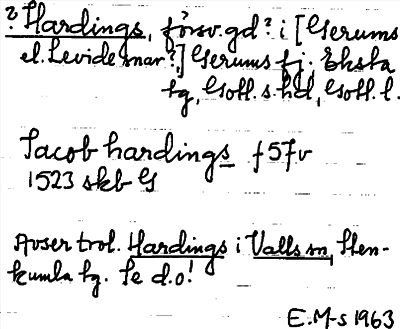 ? Hardings, försv. gd? i [Gerums
el. Levide snar?,] Gerums fj. Eksta
tg, Gotl. s. hd, Gotl. l.
Jacob hardings f 57v
1523 skb G
Avser trol. Hardings i Valls sn, Sten-
kumla tg. Se d.o!
E.M-s 1963